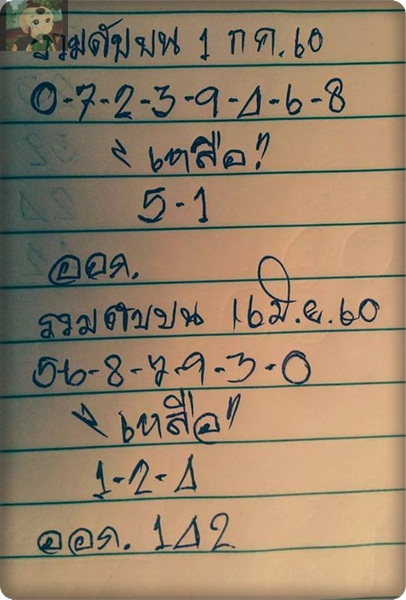 รวมดับบน 1 ก.ค. 60
0-7-2-3-9-4-6-8
"เหลือ"
5-1
ออก.
รวมดับบน 16 มิ.ย. 60
56-8-7-9-3-0
"เหลือ"
1-2-4
ออก. 142